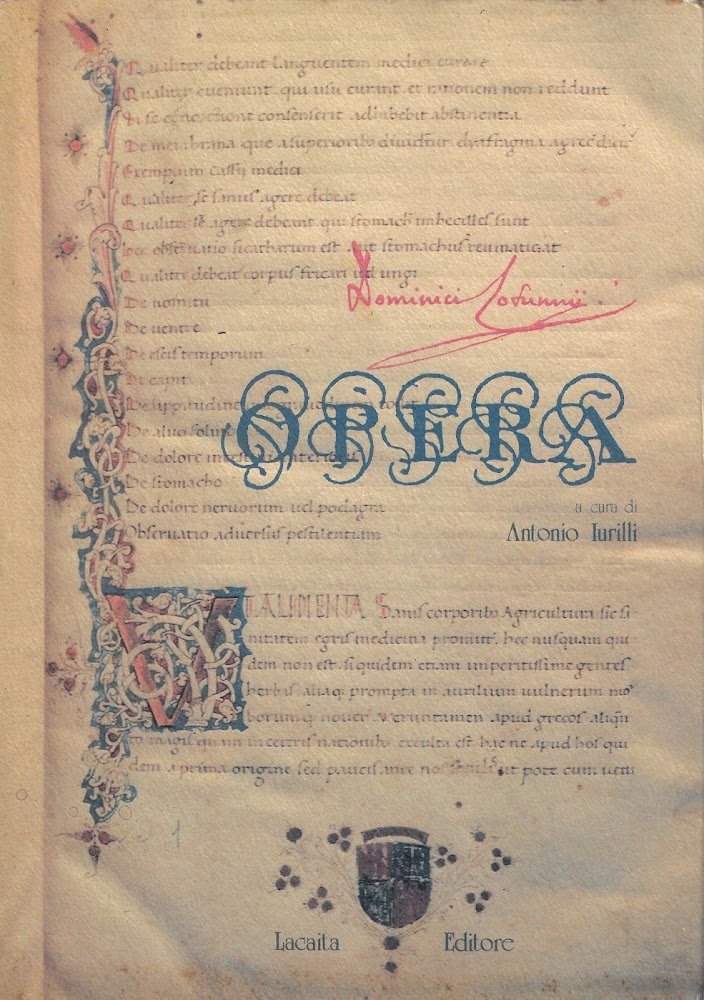 Qualiter debeant languentem medici curare
Qualiter eveniunt qui usu curant et rationem non reddunt
Vi se concoctione consenserit adhibebit abstinentia
De membrana que a superiorib dividitur dyafragma
Exemplum Cassii medici
Qualiter se sanus agere debeat
Qualiter se agere debeant qui stomach imbecilles sunt
hec observatio sicatharum est aut stomachus reumatizat
Qualiter debeat corpus fricari vel ungi
De vomitu
Dominici Cotunnii
De ventre
De escis temporum
De capit
OPERA
De alvo
De dolore
De stomacho
a cura di
De dolore nervorum vel podagra
Antonio Iurilli
Observatio adversus pestilentiam
VT ALIMENTA Sanis corporib Agricultura sic sa
nitatem egris medicina promitt. hec nusquam qui
dem non est. siquidem etiam imperitissime gentes
herbas aliaq prompta in auxilium vulnerum mo
borumq nover veruntamen apud grecos aliqn
to magis in ceteris nationib exculta est hac ne apud hos qui
dem a prima origine sed paucis ante nos ut pote cum vetu
Lacaita Editore